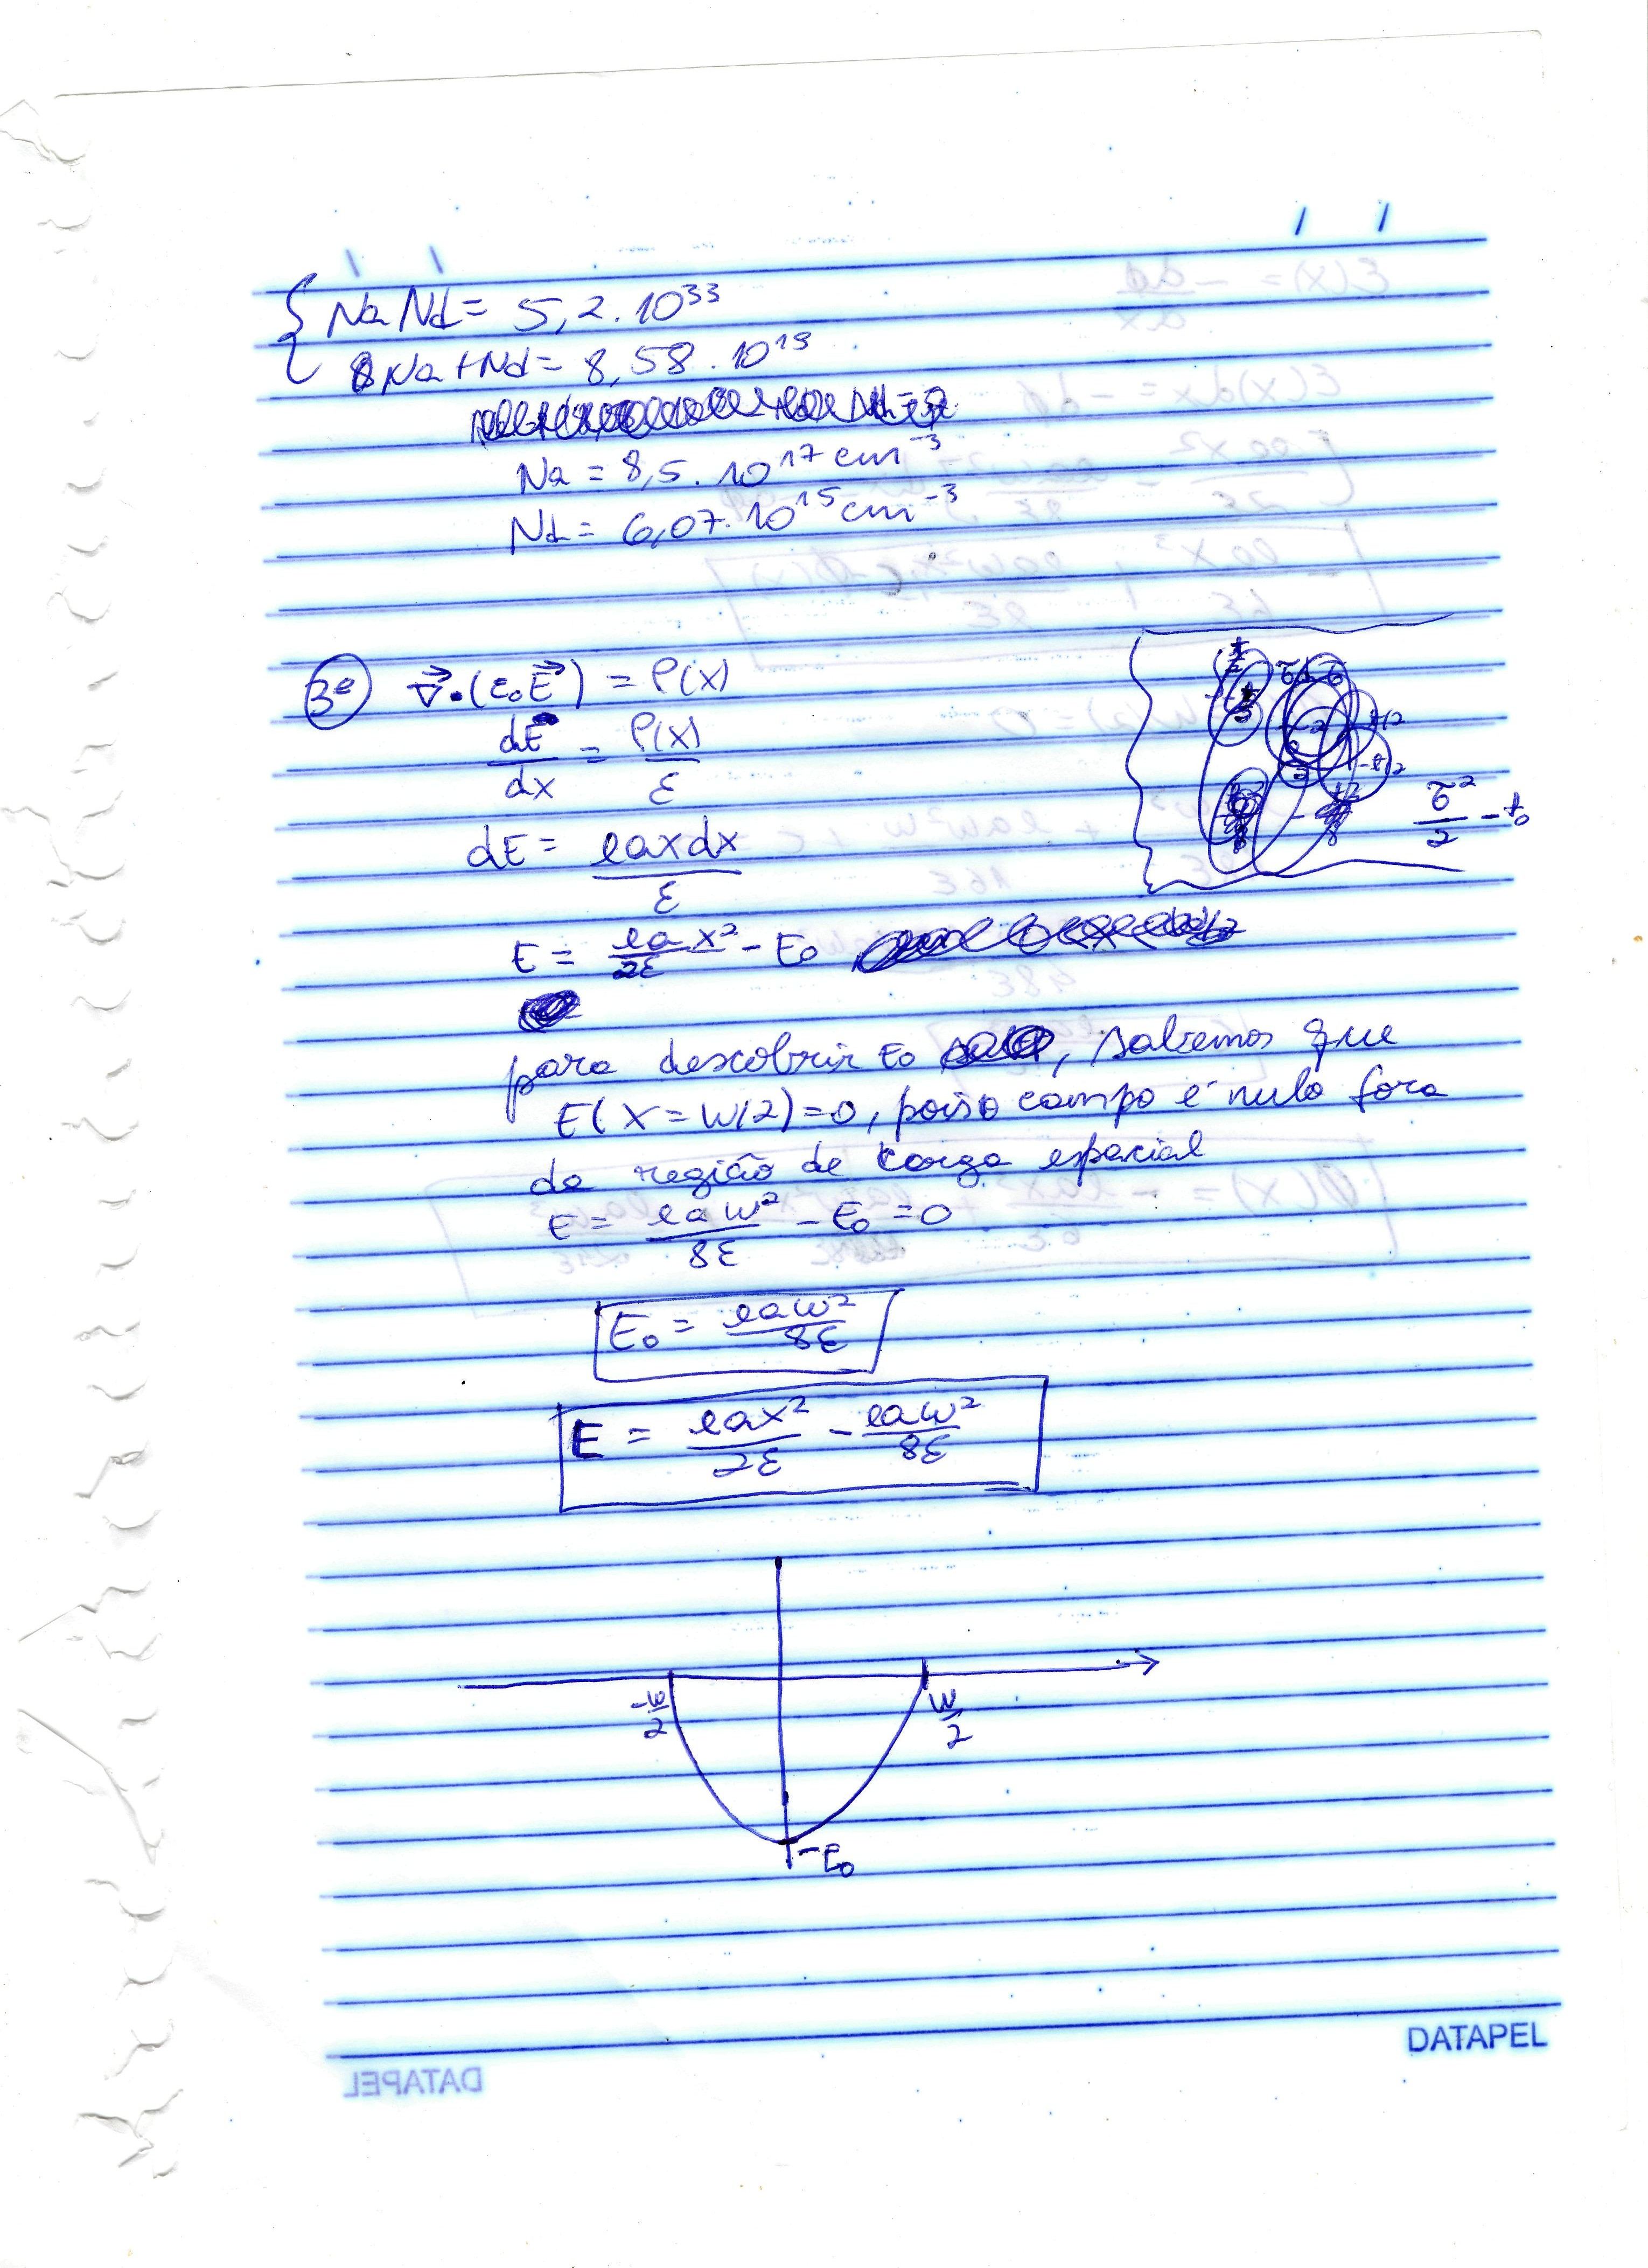 Na Nd = 5,2.10³³
Na + Nd = 8,58.10¹⁹
Na = 8,5.10¹⁷ cm⁻³
Nd = 6,07.10¹⁵ cm⁻³
3ª ∇⃗•(ε₀E⃗) = ρ(x)
dE/dx = ρ(x)/ε
dE = eaxdx/ε
τ²/2 - t₀
E = ea/2ε x² - E₀
para descobrir E₀, sabemos que
E(x = W/2) = 0, pois o campo é nulo fora
da região de carga espacial
E = eaW²/8ε - E₀ = 0
E₀ = eaW²/8ε
E = eax²/2ε - eaW²/8ε
-W/2 W/2
-E₀
DATAPEL